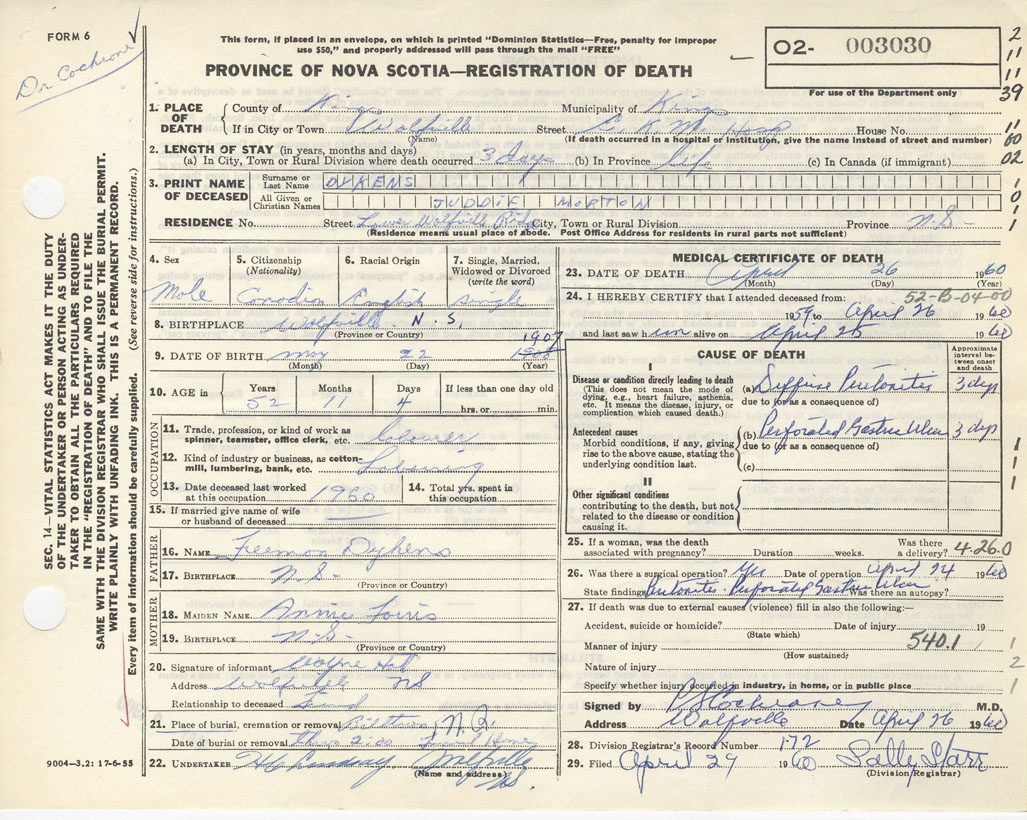 FORM 6
Dr Cochrone
This form, if placed in an envelope, on which is printed "Dominion Statistics—Free, penalty for improper
use $50," and properly addressed will pass through the mail "FREE"
PROVINCE OF NOVA SCOTIA—REGISTRATION OF DEATH
O2- 003030
For use of the Department only
2
11
11
39
11
60
02
1. PLACE OF DEATH
County of Kings Municipality of Kings
If in City or Town Wolfville Street E. K. M. Hosp House No.
(Name) (If death occurred in a hospital or institution, give the name instead of street and number)
2. LENGTH OF STAY (in years, months and days)
(a) In City, Town or Rural Division where death occurred 3 days (b) In Province Life (c) In Canada (if immigrant)
3. PRINT NAME OF DECEASED
Surname or Last Name DYKENS
All Given or Christian Names JUDDIE MORTON
1
0
1
RESIDENCE No. Street Lower Wolfville Ridge City, Town or Rural Division Province N.S
(Residence means usual place of abode. Post Office Address for residents in rural parts not sufficient)
4. Sex
Male
5. Citizenship (Nationality)
Canadian
6. Racial Origin
English
7. Single, Married, Widowed or Divorced (write the word)
single
8. BIRTHPLACE Wolfville N.S.
(Province or Country)
9. DATE OF BIRTH May 22 1907 1908
(Month) (Day) (Year)
10. AGE in
Years Months Days If less than one day old
52 11 4 hrs. or min.
OCCUPATION
11. Trade, profession, or kind of work as spinner, teamster, office clerk, etc. labourer
12. Kind of industry or business, as cotton-mill, lumbering, bank, etc. Labouring
13. Date deceased last worked at this occupation 1960
14. Total yrs. spent in this occupation
15. If married give name of wife or husband of deceased
FATHER
16. NAME Freeman Dykens
17. BIRTHPLACE N.S-
(Province or Country)
MOTHER
18. MAIDEN NAME Annie
19. BIRTHPLACE N-S-
(Province or Country)
20. Signature of informant Wayne
Address Wolfville NS
Relationship to deceased Friend
21. Place of burial, cremation or removal
Date of burial or removal
22. UNDERTAKER Wolfville
(Name and address) N.S.
9004—3.2: 17-6-55
SEC. 14—VITAL STATISTICS ACT MAKES IT THE DUTY
OF THE UNDERTAKER OR PERSON ACTING AS UNDER-
TAKER TO OBTAIN ALL THE PARTICULARS REQUIRED
IN THE "REGISTRATION OF DEATH" AND TO FILE THE
SAME WITH THE DIVISION REGISTRAR WHO SHALL ISSUE THE BURIAL PERMIT.
WRITE PLAINLY WITH UNFADING INK. THIS IS A PERMANENT RECORD.
Every item of information should be carefully supplied. (See reverse side for instructions.)
MEDICAL CERTIFICATE OF DEATH
23. DATE OF DEATH April 26 1960
(Month) (Day) (Year)
24. I HEREBY CERTIFY that I attended deceased from: 52-B-04-00
1959 to April 26 1960
and last saw him alive on April 25 1960
CAUSE OF DEATH
Approximate interval between onset and death
I
Disease or condition directly leading to death
(This does not mean the mode of dying, e.g., heart failure, asthenia, etc. It means the disease, injury, or complication which caused death.)
(a) Diffuse Peritonitis 3 days
due to (or as a consequence of)
Antecedent causes
Morbid conditions, if any, giving rise to the above cause, stating the underlying condition last.
(b) Perforated Gastric Ulcer 3 days
due to (or as a consequence of)
(c)
1
1
1
II
Other significant conditions
contributing to the death, but not related to the disease or condition causing it.
25. If a woman, was the death associated with pregnancy? Duration weeks. Was there a delivery? 4.26.0
26. Was there a surgical operation? Yes Date of operation April 24 1960
State findings Peritonitis - Perforated Gastric Ulcer Was there an autopsy?
27. If death was due to external causes (violence) fill in also the following:—
Accident, suicide or homicide? Date of injury 19
(State which)
Manner of injury 540.1
(How sustained)
Nature of injury
Specify whether injury occurred in industry, in home, or in public place
1
2
1
Signed by Cochrane M.D.
Address Wolfville Date April 26 1960
28. Division Registrar's Record Number 172
29. Filed April 29 1960 Sally Starr
(Division Registrar)